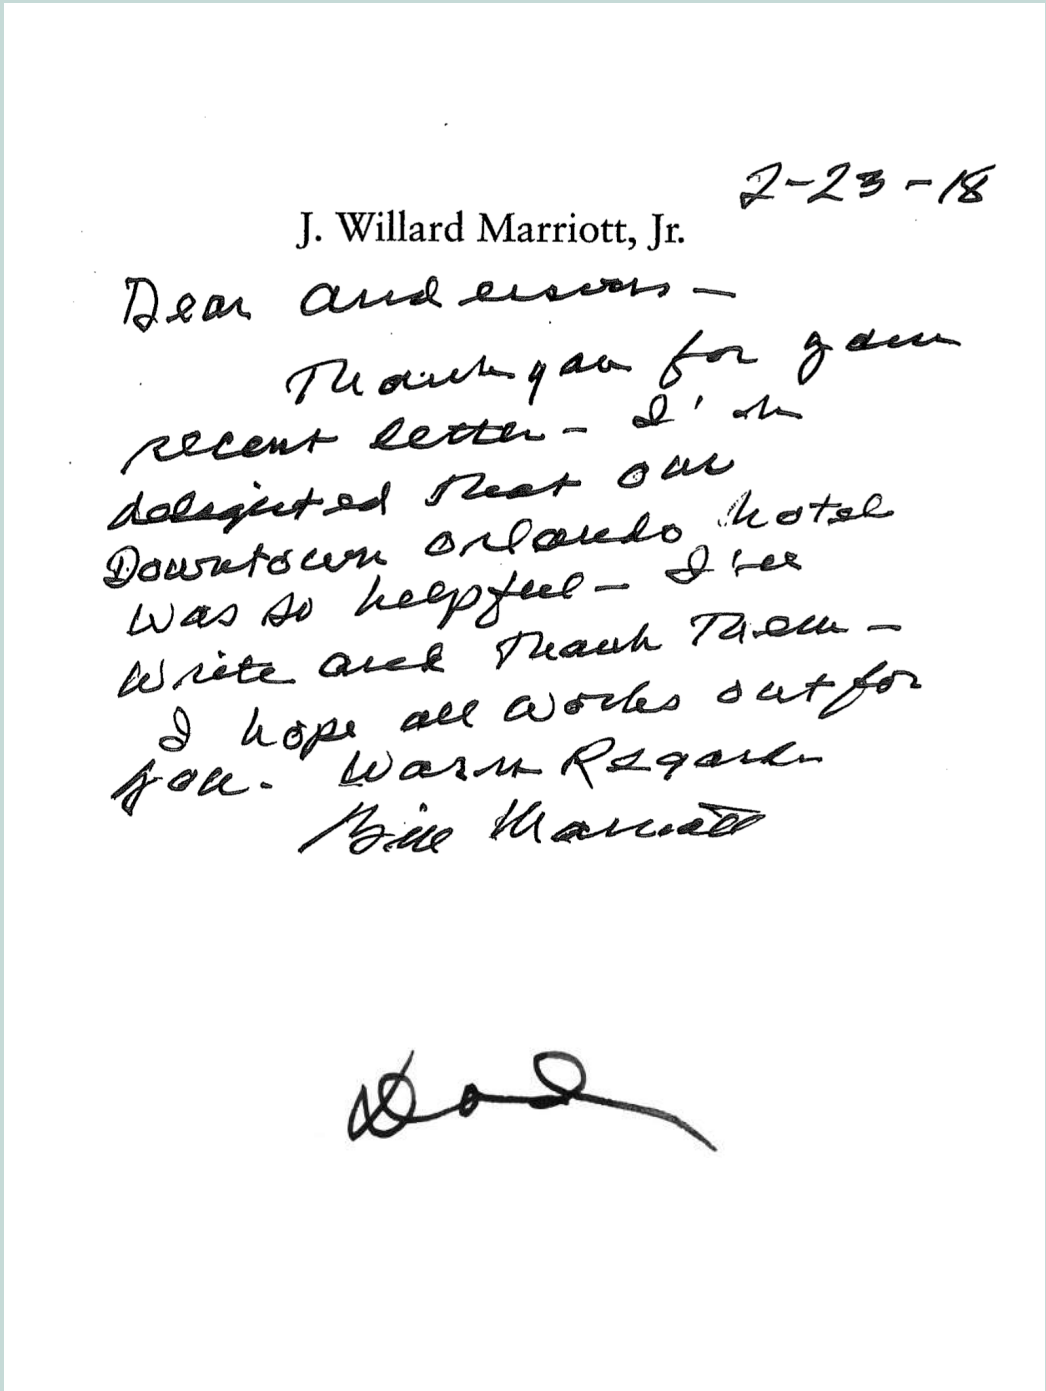 2-23-18
J. Willard Marriott, Jr.
Dear Anderson —
Thank you for your
recent letter - I'm
delighted that our
Downtown Orlando hotel
was so helpful — I'll
write and thank them —
I hope all works out for
you. Warm Regards
Bill Marriott